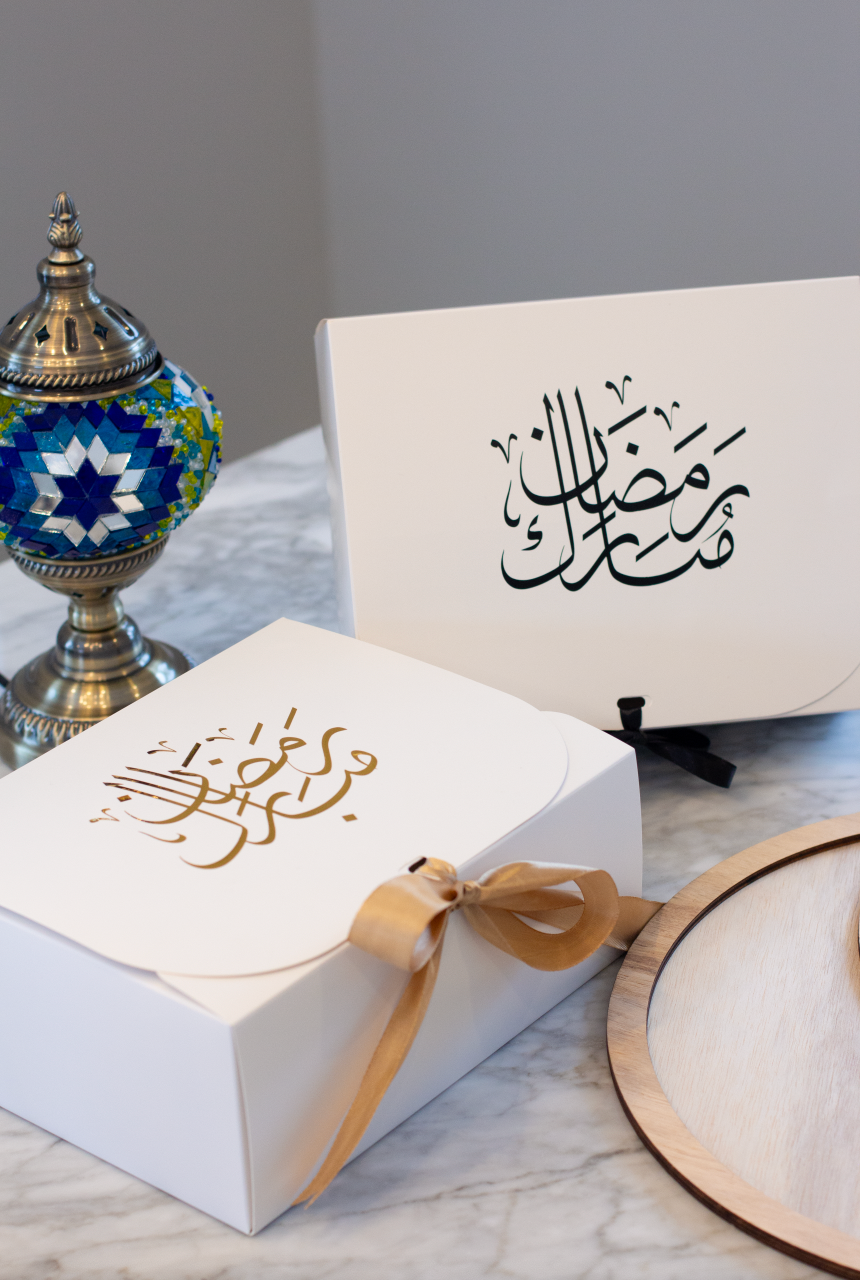 رمضان
مُبارك
رمضان
مبارك